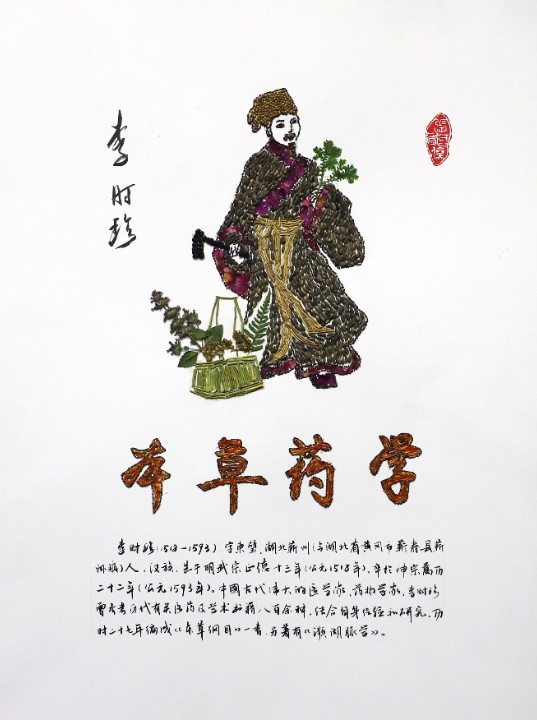 李时珍
本草药学
李时珍(1518—1593)字东璧,湖北蕲州(今湖北省黄冈市蕲春县蕲
州镇)人,汉族,生于明武宗正德十三年(公元1518年),卒于神宗万历
二十二年(公元1593年)。中國古代伟大的医学家、药物学家,李时珍
曾参考历代有关医药及学术书籍八百余种,结合自身经验和研究,历
时二十七年编成《本草纲目》一书,另著有《濒湖脉学》。